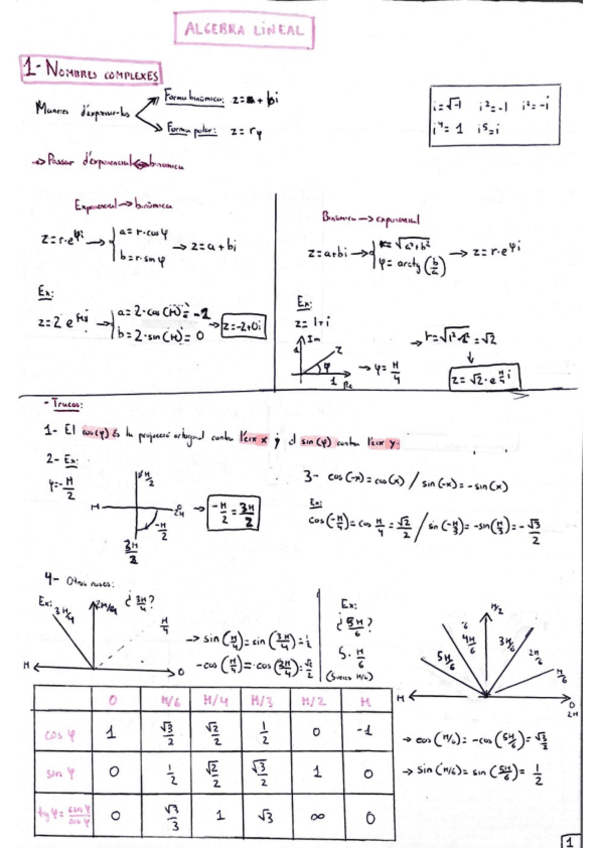 ALGEBRA LINEAL
1- NOMBRES COMPLEXES
Maneres d'expressar-los
Forma binòmica: z=a+bi
Forma polar: z=rφ
i=√-1 i²=-1 i³=-i
i⁴=1 i⁵=i
→ Passar d'exponencial↔binòmica
Exponencial → binòmica
z=r·e^φi → { a=r·cosφ
b=r·sinφ → z=a+bi
Ex:
a=2·cos(π)=-2
b=2·sin(π)=0 → z=-2+0i
Binòmica → exponencial
z=a+bi → { r=√a²+b²
φ=arctg(b/a) → z=r·e^φi
Ex:
z=1+i
Im
1
z
φ
1 Re
→ φ=π/4
→ r=√1²+1²=√2
z=√2·e^π/4 i
- Trucos:
1- El cos(φ) és la projecció ortogonal contra l'eix x i el sin(φ) contra l'eix y.
2- Ex:
φ=-π/2
π/2
π
0
2π
-π/2
3π/2
→ -π/2=3π/2
3- cos(-x)=cos(x) / sin(-x)=-sin(x)
Ex:
cos(-π/4)=cos π/4=√2/2 / sin(-π/3)=-sin(π/3)=-√3/2
4- Otros trucos:
Ex: 3π/4
2π/4
¿3π/4?
π/4
π
0
→ sin(π/4)=sin(3π/4)=
-cos(π/4)=cos(3π/4)=
Ex:
¿5π/6?
5·π/6
π/2
5π/6
4π/6
3π/6
2π/6
π/6
π
0
2π
→ cos(π/6)=-cos(5π/6)=√3/2
→ sin(π/6)=sin(5π/6)=1/2
0 π/6 π/4 π/3 π/2 π
cos φ 1 √3/2 √2/2 1/2 0 -1
sin φ 0 1/2 √2/2 √3/2 1 0
tgφ=sinφ/cosφ 0 √3/3 1 √3 ∞ 0
1